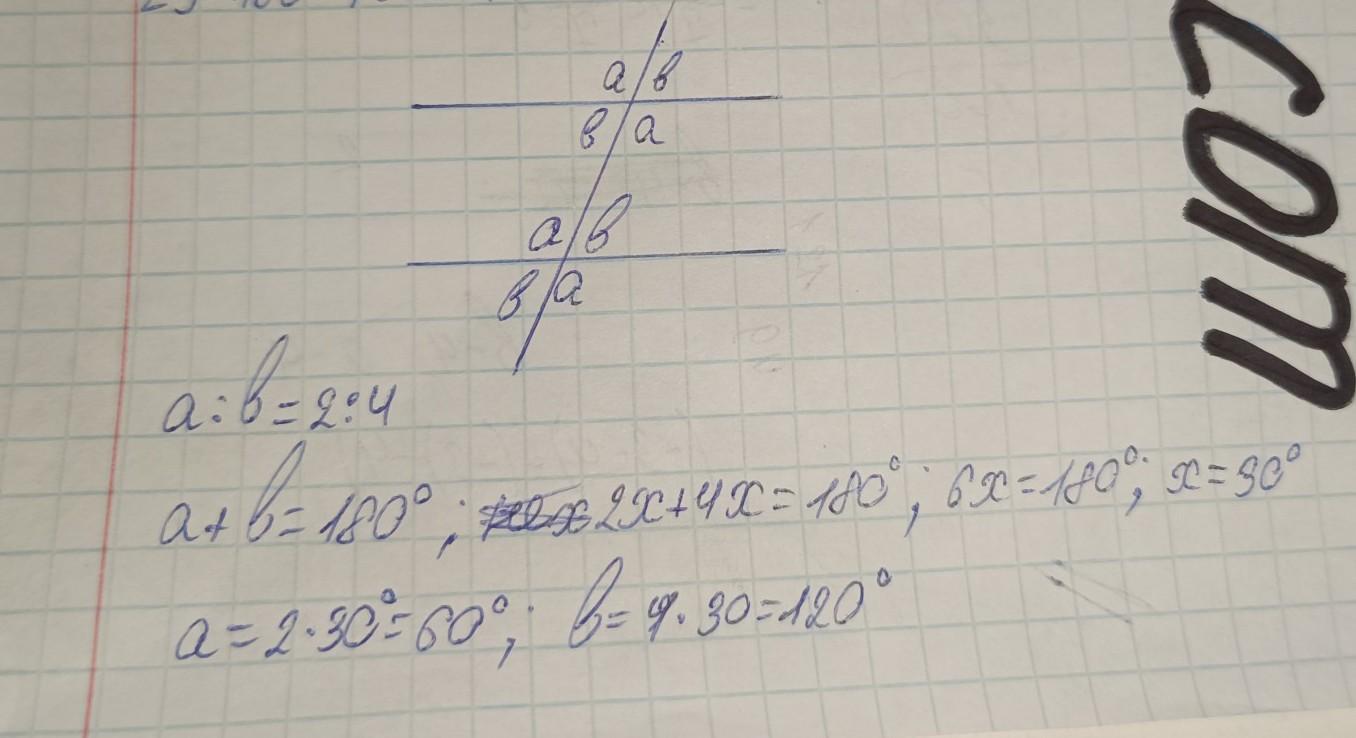 a b
b a
a b
b a
a : b = 2 : 4
a + b = 180°; 2x + 4x = 180°; 6x = 180°; x = 30°
a = 2 · 30° = 60°; b = 4 · 30 = 120°